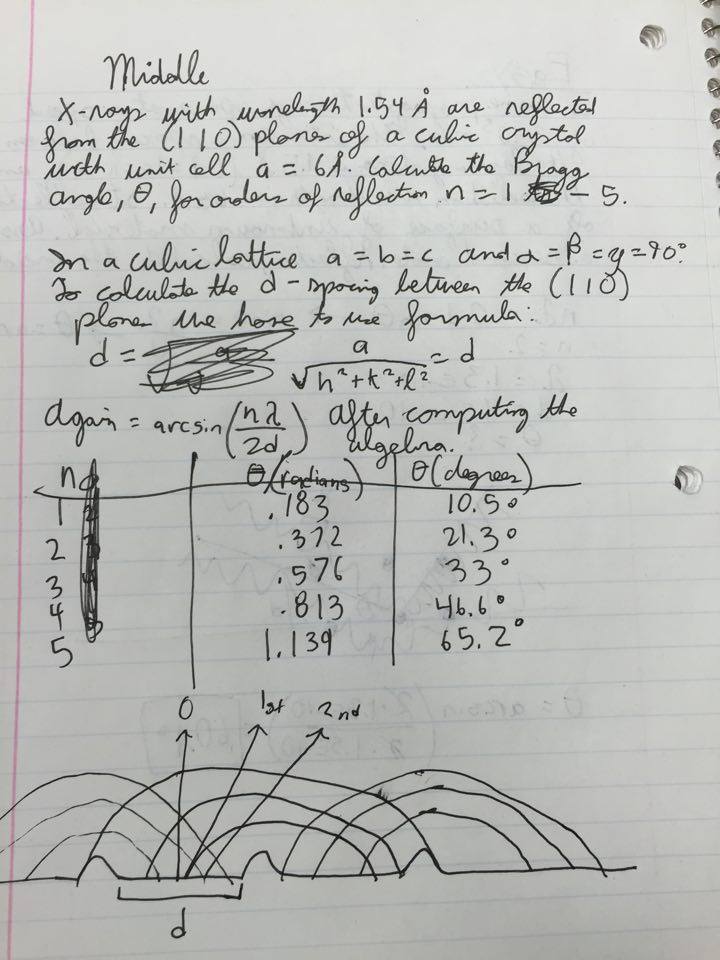 Middle
X-rays with wavelength 1.54 Å are reflected
from the (110) planes of a cubic crystal
with unit cell a = 6Å. Calculate the Bragg
angle, θ, for orders of reflection n = 1 - 5.
In a cubic lattice a = b = c and α = β = γ = 90°.
To calculate the d-spacing between the (110)
planes we have to use formula:
d = a/√(h²+k²+l²) = d
again = arcsin(nλ/2d) after computing the
algebra.
n θ(radians) θ(degrees)
1 .183 10.5°
2 .372 21.3°
3 .576 33°
4 .813 46.6°
5 1.139 65.2°
0 1st 2nd
d